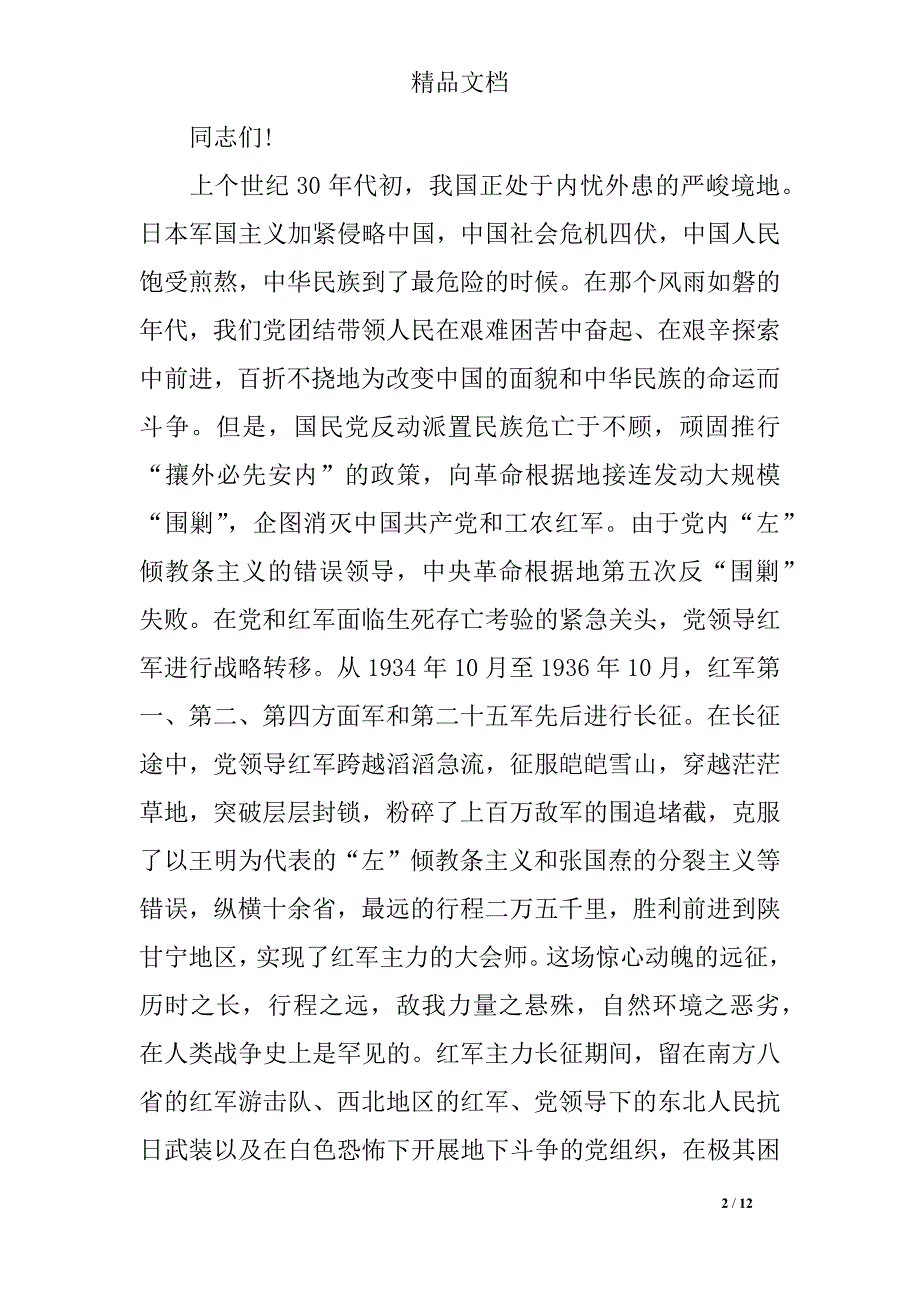 精品文档
同志们!
上个世纪 30 年代初，我国正处于内忧外患的严峻境地。
日本军国主义加紧侵略中国，中国社会危机四伏，中国人民
饱受煎熬，中华民族到了最危险的时候。在那个风雨如磐的
年代，我们党团结带领人民在艰难困苦中奋起、在艰辛探索
中前进，百折不挠地为改变中国的面貌和中华民族的命运而
斗争。但是，国民党反动派置民族危亡于不顾，顽固推行
“攘外必先安内”的政策，向革命根据地接连发动大规模
“围剿”，企图消灭中国共产党和工农红军。由于党内“左”
倾教条主义的错误领导，中央革命根据地第五次反“围剿”
失败。在党和红军面临生死存亡考验的紧急关头，党领导红
军进行战略转移。从 1934 年 10 月至 1936 年 10 月，红军第
一、第二、第四方面军和第二十五军先后进行长征。在长征
途中，党领导红军跨越滔滔急流，征服皑皑雪山，穿越茫茫
草地，突破层层封锁，粉碎了上百万敌军的围追堵截，克服
了以王明为代表的“左”倾教条主义和张国焘的分裂主义等
错误，纵横十余省，最远的行程二万五千里，胜利前进到陕
甘宁地区，实现了红军主力的大会师。这场惊心动魄的远征，
历时之长，行程之远，敌我力量之悬殊，自然环境之恶劣，
在人类战争史上是罕见的。红军主力长征期间，留在南方八
省的红军游击队、西北地区的红军、党领导下的东北人民抗
日武装以及在白色恐怖下开展地下斗争的党组织，在极其困
2 / 12